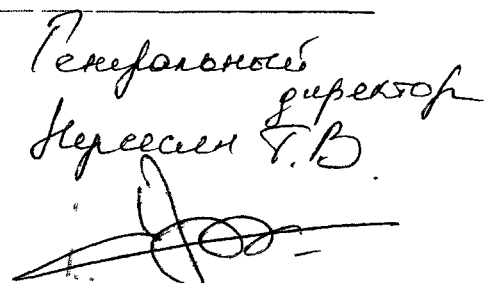 Генеральный
директор
Нерсесян Т.В.